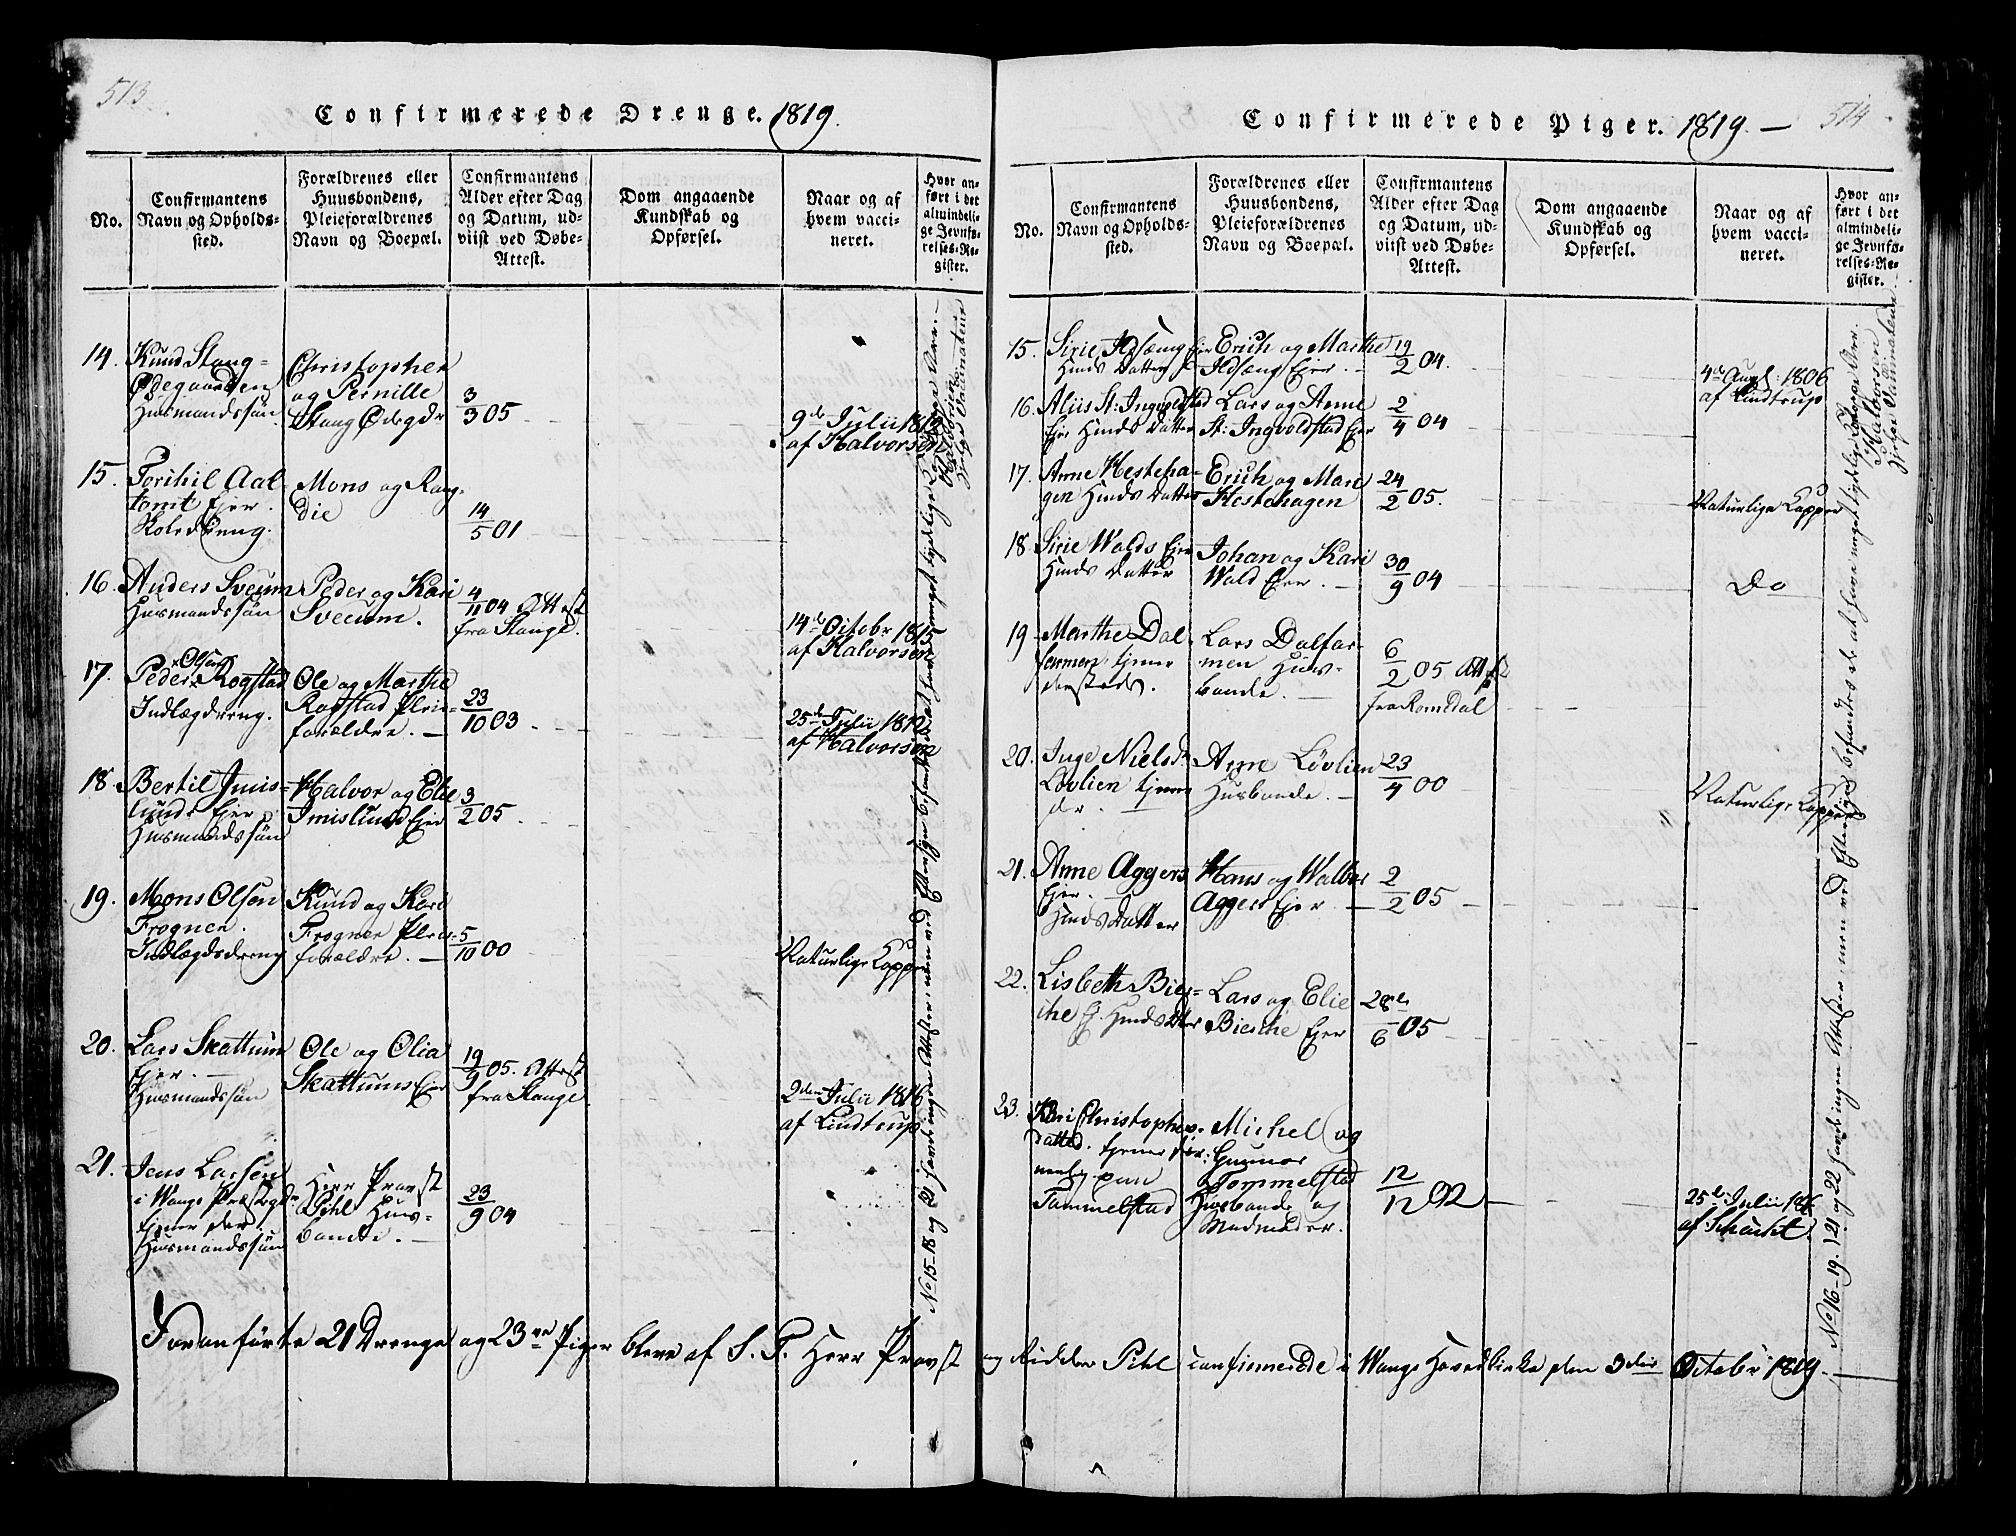 513.
Confirmerede Drenge. 1819.
No.
Confirmantens
Navn og Opholds-
sted.
Forældrenes eller
Huusbondens,
Pleieforældrenes
Navn og Boepæl.
Confirmantens
Alder efter Dag
og Datum, ud-
viist ved Døbe-
Attest.
Dom angaaende
Kundskab og
Opførsel.
Naar og af
hvem vacci-
neret.
Hvor an-
ført i det
almindeli-
ge Jevnfø-
relses-Re-
gister.
14. Knud Stang-
Ødegaarden
Huusmandssøn
Christopher
og Pernille
Stang Ødegdr
3/3 05
9de Julii 1819
af Halvorsen
15. Torchil Aal-
tomt Ejer.
Skoledreng.
Mons og Rang-
die
14/5 01
16. Anders Sveum
Huusmandssøn
Peder og Kari
Sveum.
4/11 04 Attest
fra Stange.
14de Octobr 1815
af Halvorsen
17. Peder Olsen Rogstad
Indlægdreng.
Ole og Marthe
Rogstad Pleie-
forældre.
23/10 03
25de Julii 1812
af Halvorsen
18. Bertil Imis-
lund Ejer
Huusmandssøn
Halvor og Elie
Imislund Ejer
3/2 05
19. Mons Olsen
Frogner.
Indlægdsdreng
Knud og Kari
Frogner Pleie-
forældre.
5/10 00
Naturlige Kopper
20. Lars Skattum
Ejer.
Huusmandssøn
Ole og Olia
Skattums Ejer
19/9 05. Attest
fra Stange
2den Julii 1816
af Lindtrup
21. Jens Larsen
i Wangs Præstegdr
tjener der
Huusmandssøn
Herr Provst
Pihl Huus-
bonde.
23/9 04
No 15-18 og 21 havde ingen Attester, men ved Eftersyn befandtes de at have meget tydelige Kopp Arr.
Halvorsen
Hjelpe Vaccinateur
514
Confirmerede Piger. 1819.
No.
Confirmantens
Navn og Opholds-
sted.
Forældrenes eller
Huusbondens,
Pleieforældrenes
Navn og Boepæl.
Confirmantens
Alder efter Dag
og Datum, ud-
viist ved Døbe-
Attest.
Dom angaaende
Kundskab og
Opførsel.
Naar og af
hvem vacci-
neret.
Hvor an-
ført i det
almindeli-
ge Jevnfø-
relses-Re-
gister.
15. Sirie Ildsæng Ejer
Hmds Datter
Erich og Marthe
Ildsæng Ejer.
19/2 04.
4de Augt. 1806
af Lindtrup
16. Aliis St: Ingvoldstad
Ejer Hmds Datter
Lars og Anne
St: Ingvoldstad Ejer
2/4 04
17. Anne Hesteha-
gen Hmds Datter
Erich og Mari
Hestehagen
24/2 05.
Naturlige Kopper
18 Sirie Wolds Ejer
Hmds Datter
Johan og Kari
Wold Ejer.
30/9 04
Do
19 Marthe Dal
farmen, tjener
dersteds.
Lars Dalfar-
men Huus-
bonde.
6/2 05 Attest
fra Romedal
20. Inge Nielsdr
Løvlien tjener
dr.
Arne Løvlien
Husbonde.
23/4 00
Naturlige Kopper
21. Anne Aggers
Ejer.
Hmds Datter
Hans og Walbor
Aggers Ejer
2/2 05
22. Lisbeth Bier-
che Ej. Hmds Dtter
Lars og Elie
Bierche Ejer
28/6 05
23. Kari Christophers-
datter. tjener for
nemlig paa
Tommelstad
Michel og
Gunnor
Tommelstad
Husbonde og
Madmoder.
12/12 02
25de Julii 18
af Schacht.
No 16-19. 21 og 22 havde ingen Attester, men ved Eftersyn befandtes de at have meget tydelige Koppe Arr.
Halvorsen
Hjelpe Vaccinateur
Foranførte 21 Drenge og 23de Piger bleve af S. T. Herr Provst og Ridder Pihl confirmerede i Wangs Hovedkirke den 3die October 1819.